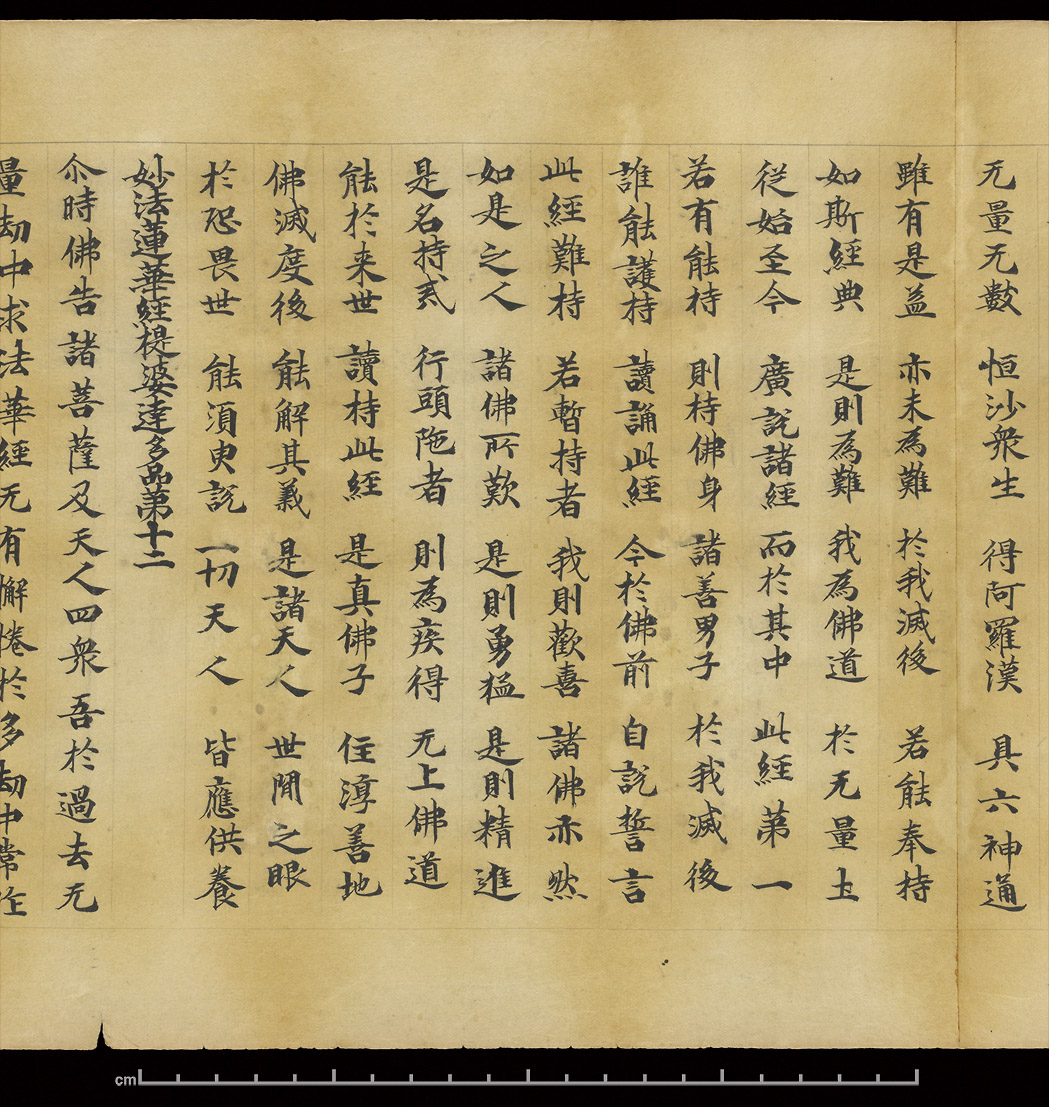 无量无數 恒沙衆生 得阿羅漢 具六神通
雖有是益 亦未為難 於我滅後 若能奉持
如斯經典 是則為難 我為佛道 於无量土
從始至今 廣説諸經 而於其中 此經第一
若有能持 則持佛身 諸善男子 於我滅後
誰能護持 讀誦此經 今於佛前 自説誓言
此經難持 若暫持者 我則歡喜 諸佛亦然
如是之人 諸佛所歎 是則勇猛 是則精進
是名持戒 行頭陁者 則為疾得 无上佛道
能於来世 讀持此經 是真佛子 住淳善地
佛滅度後 能解其義 是諸天人 世間之眼
於恐畏世 能須臾説 一切天人 皆應供養
妙法蓮華經提婆達多品第十二
尒時佛告諸菩薩及天人四衆吾於過去无
量劫中求法華經无有懈惓於多劫中常作
cm